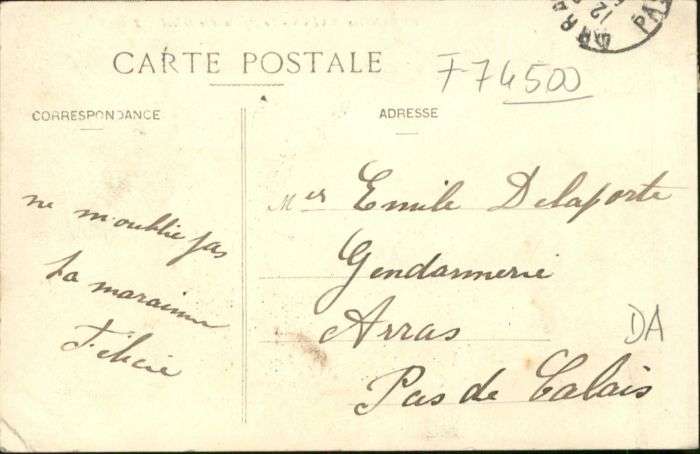 CARTE POSTALE
F 74500
CORRESPONDANCE
ADRESSE
ne m'oublie pas
ta marainne
Félicie
Mer Emile Delaporte
Gendarmerie
Arras
Pas de Calais
DA